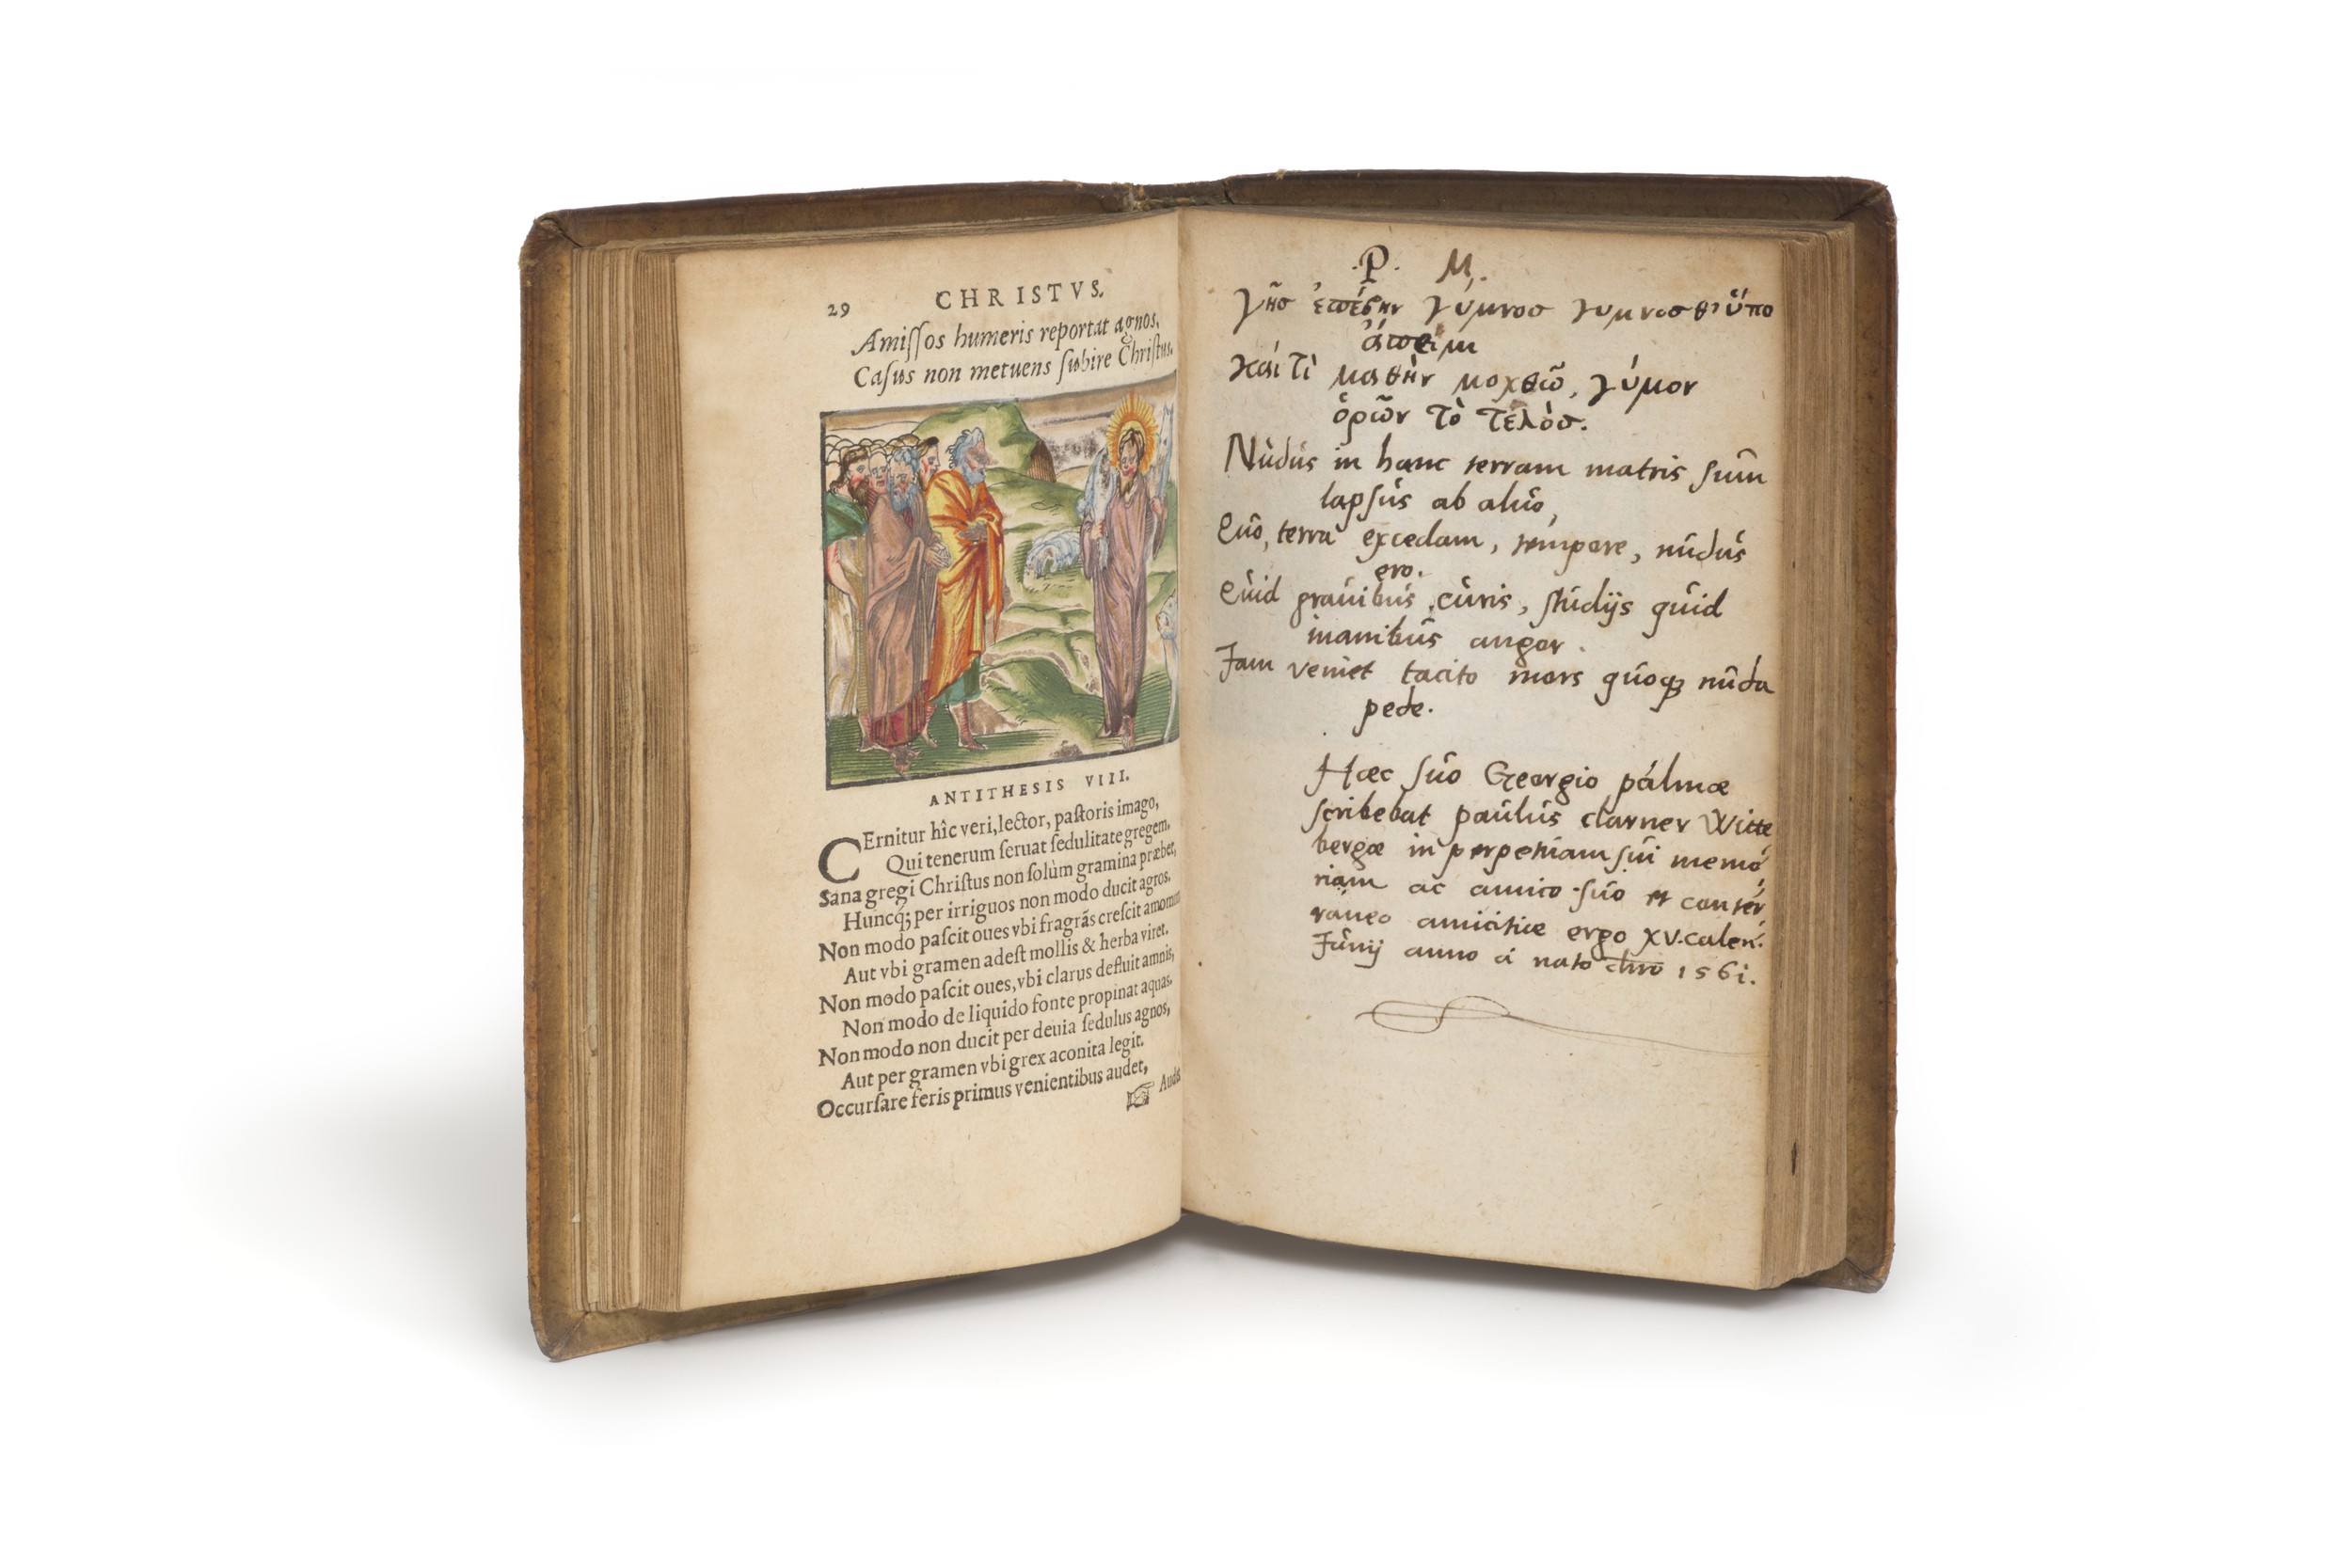 29 CHRISTVS.
Amiſſos humeris reportat agnos,
Caſus non metuens ſubire Chriſtus.
ANTITHESIS VIII.
CErnitur hîc veri, lector, paſtoris imago,
Qui tenerum ſeruat ſedulitate gregem.
Sana gregi Chriſtus non ſolùm gramina præbet,
Huncq́; per irriguos non modo ducit agros.
Non modo paſcit oues vbi fragrãs creſcit amomum
Aut vbi gramen adeſt mollis & herba viret.
Non modo paſcit oues, vbi clarus defluit amnis,
Non modo de liquido fonte propinat aquas.
Non modo non ducit per deuia ſedulus agnos,
Aut per gramen vbi grex aconita legit.
Occurſare feris primus venientibus audet,
Audet
.P. M.
γῆσ ἐπέβην γύμνοσ γυμνοσ θ' ὕπο
ἄπειμι
καὶ τὶ μαθὴν μοχθῶ, γύμον
ὁρῶν τὸ τέλὸσ.
Nudus in hanc terram matris ſum
lapſus ab aluo,
Quo, terra excedam, tempore, nudus
ero.
Quid grauibus curis, ſtudijs quid
inanibus angor.
Jam veniet tacito mors quoqꝫ nuda
pede.
Hæc ſuo Georgio palmæ
ſcribebat paulus clarner Witte
bergæ in perpetuam ſui memo
riam ac amico ſuo et conter
raneo amicitiæ ergo XV. calen.
Junij anno a nato chro 1561.